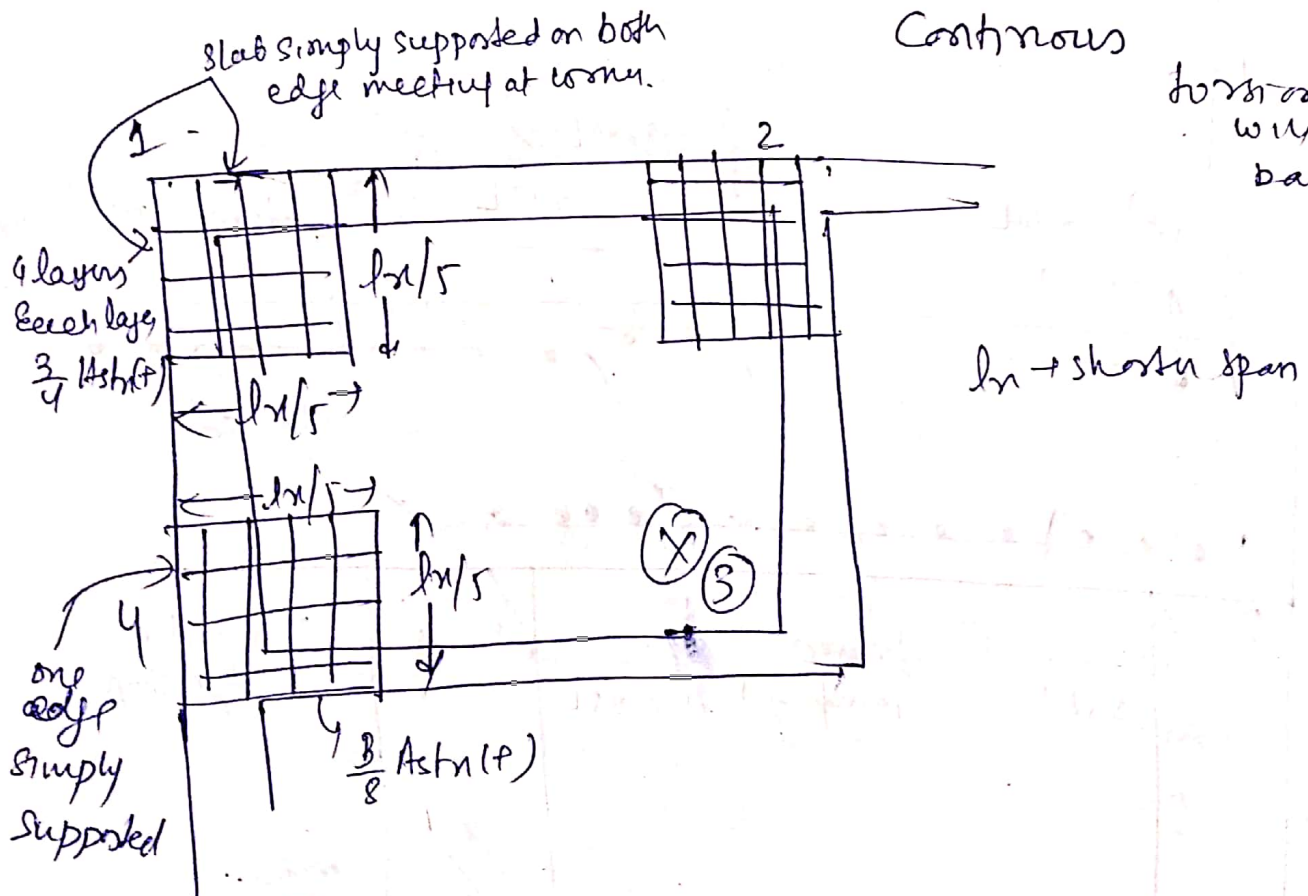 Slab simply supported on both
edge meeting at corner.
Continous
1
2
4 layers
Each layer
3/4 Astx(+)
lx/5
lx/5
lx → shorter span
lx/5
lx/5
X
3
4
one
edge
simply
supported
3/8 Astx(+)